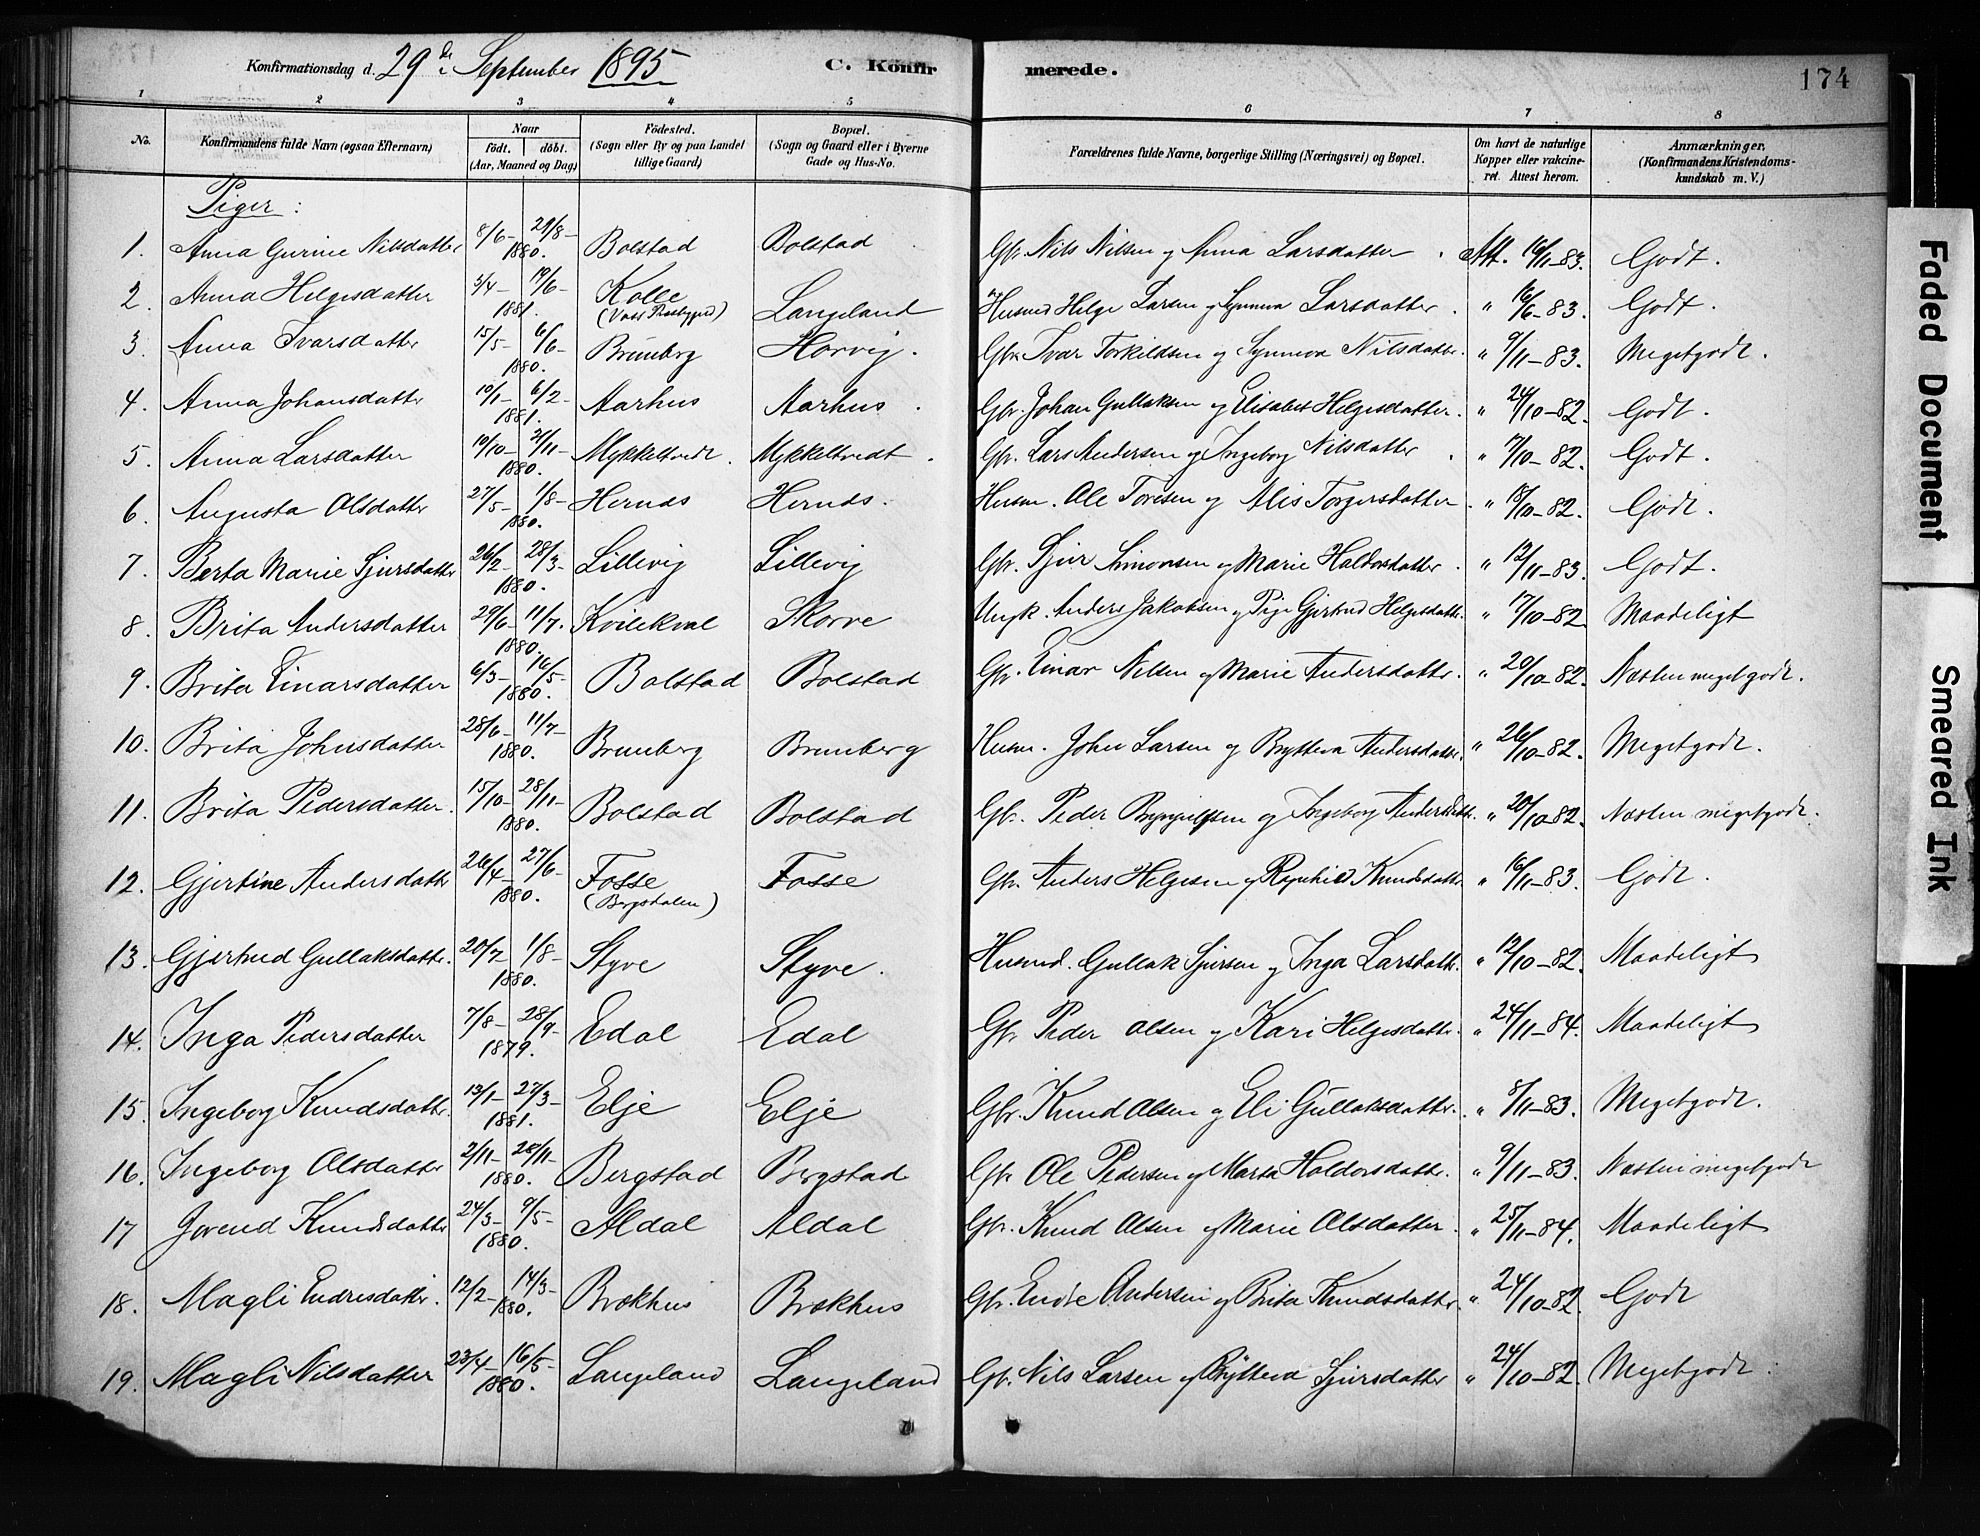 Konfirmationsdag d. 29de September 1895 C. Konfirmerede. 174
1 2 3 4 5 6 7 8
No. Konfirmandens fulde Navn (ogsaa Efternavn) Naar födt. döbt. (Aar, Maaned og Dag) Födested. (Sogn eller By og paa Landet tillige Gaard) Bopæl. (Sogn og Gaard eller i Byerne Gade og Hus-No. Forældrenes fulde Navne, borgerlige Stilling (Næringsvei) og Bopæl. Om havt de naturlige Kopper eller vakcineret. Attest herom. Anmærkninger. (Konfirmandens Kristendomskundskab m. V.)
Piger:
1. Anna Gurine Nilsdatter 8/6- 29/8- 1880. Bolstad Bolstad Gbr. Nils Nilsen og Anna Larsdatter Att. 16/11-83. Godt.
2. Anna Helgesdatter 3/4- 19/6- 1881. Kolle (Voss Præstegjeld) Langeland Husmd Helge Larsen og Synneva Larsdatter " 16/6-83. Godt.
3. Anna Ivarsdatter 15/5- 6/6- 1880. Brunberg Horvig. Gbr. Ivar Torkildsen og Synneva Nilsdatter. " 9/11-83. Megetgodt.
4. Anna Johansdatter 10/1- 6/2- 1881. Aarhus Aarhus. Gbr. Johan Gullaksen og Elisabet Helgesdatter. " 24/10-82. Godt.
5. Anna Larsdatter 10/10- 21/11- 1880. Mykkeltvedt. Mykkeltvedt. Gbr. Lars Andersen og Ingeborg Nilsdatter " 7/10-82. Godt.
6. Augusta Olsdatter 27/5- 1/8- 1880. Hernds Hernds. Husm. Ole Toresen og Alis Torgersdatter " 18/10-82. Godt.
7. Berta Marie Sjursdatter 26/2- 28/3- 1880. Lillevig Lillevig Gbr. Sjur Simonsen og Marie Haldorsdatter. " 12/11-83. Godt.
8. Brita Andersdatter 29/6- 11/7. 1880. Kvilekval Skorve Ungk. Anders Jakobsen og Pige Gjertrud Helgesdatter. " 17/10-82 Maadeligt
9. Brita Einarsdatter 6/3- 16/5- 1880. Bolstad Bolstad Gbr. Einar Nilsen og Marie Andersdatter. " 20/10-82. Næsten megetgodt.
10. Brita Johnsdatter 28/6- 11/7- 1880. Brunberg Brunberg Husm. John Larsen og Brytteva Andersdatter. " 26/10-82. Megetgodt.
11. Brita Pedersdatter. 15/10- 28/11- 1880. Bolstad Bolstad Gbr. Peder Brynjulfsen og Ingeborg Andersdatter. " 20/10-82. Næsten megetgodt.
12. Gjertine Andersdatter 26/4- 27/6- 1880. Fosse (Bergsdalen) Fosse Gbr. Anders Helgesen og Ragnhild Knudsdatter. " 16/11-83. Godt.
13. Gjertrud Gullaksdatter. 20/7- 1/8- 1880. Styve Styve. Husmd. Gullak Sjursen og Inga Larsdatter. " 12/10-82. Maadeligt
14. Inga Pedersdatter 7/8- 28/9- 1879. Edal Edal Gbr. Peder Olsen og Kari Helgesdatter. " 24/11-84. Maadeligt
15. Ingeborg Knudsdatter. 13/1- 27/3- 1881. Elje Elje Gbr. Knud Olsen og Eli Gullaksdatter. " 8/11-83. Megetgodt.
16. Ingeborg Olsdatter 2/11- 28/11- 1880. Bergstad Bergstad Gbr. Ole Pedersen og Marta Haldorsdatter. " 9/11-83. Næsten megetgodt
17 Jorend Knudsdatter 24/3- 9/5- 1880. Aldal Aldal Gbr. Knud Olsen og Marie Olsdatter. " 25/11-84. Maadeligt
18. Magli Endresdatter. 12/2- 14/3- 1880. Brækhus Brækhus Gbr. Endre Andersen og Brita Knudsdatter " 24/10-82. Godt
19. Magli Nilsdatter 23/4- 16/5- 1880. Langeland Langeland Gbr. Nils Larsen og Brytteva Sjursdatter " 24/10-82. Megetgodt.
Faded Document
Smeared Ink